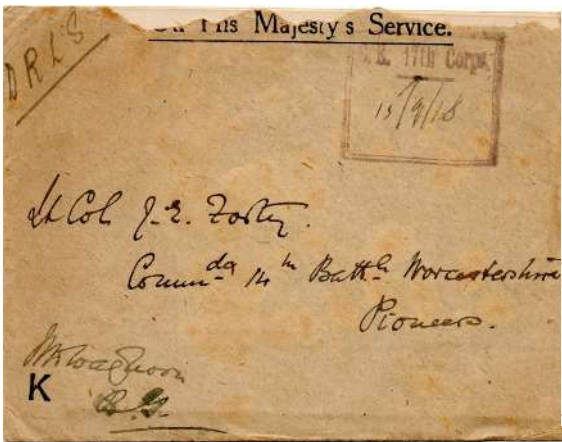 DRLS
On His Majesty's Service.
R. 17th Corps.
15/9/18
Lt Col J. E.
Commdg 14th Battn Worcestershire
Pioneers.
K